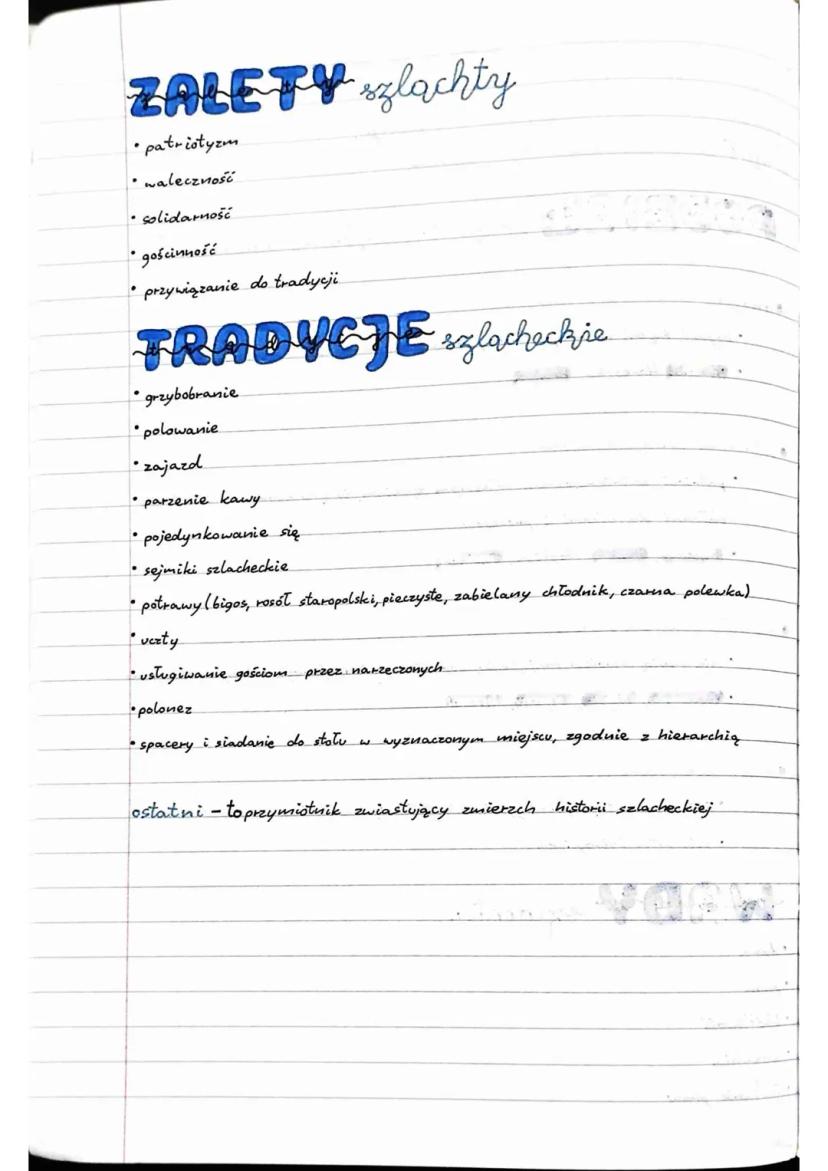 ZALETY szlachty
• patriotyzm
• waleczność
• solidarność
• gościnność
• przywiązanie do tradycji
TRADYCJE szlacheckie
• grzybobranie
• polowanie
• zajazd
• parzenie kawy
• pojedynkowanie się
• sejmiki szlacheckie
• potrawy (bigos, rosół staropolski, pieczyste, zabielany chłodnik, czarna polewka)
• uczty
• usługiwanie gościom przez narzeczonych
• polonez
• spacery i siadanie do stołu w wyznaczonym miejscu, zgodnie z hierarchią
ostatni – to przymiotnik zwiastujący zmierzch historii szlacheckiej